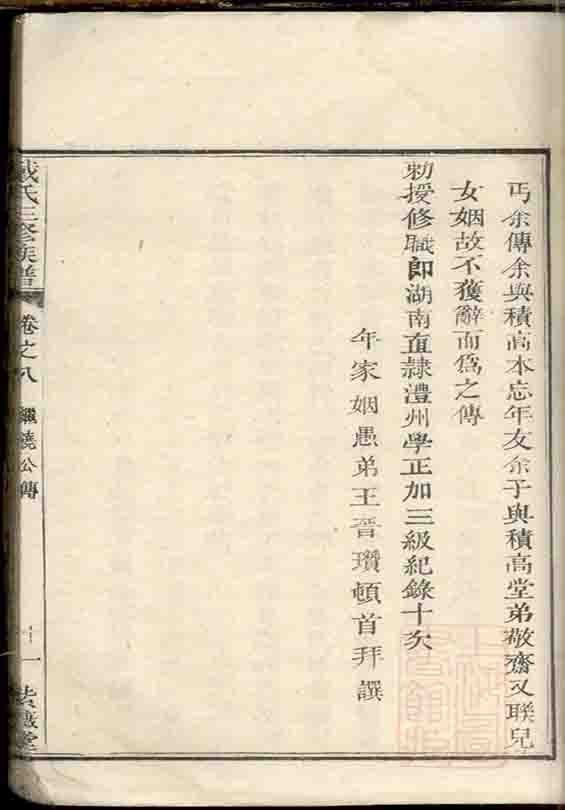 丐余傳余與積高本忘年友余子與積高堂弟敬齋又聯兒
女姻故不獲辭而為之傳
勅授修職郎湖南直隸澧州學正加三級紀錄十次
年家姻愚弟王晉瓚頓首拜譔
戴氏三修族譜
卷之八
公傳
一